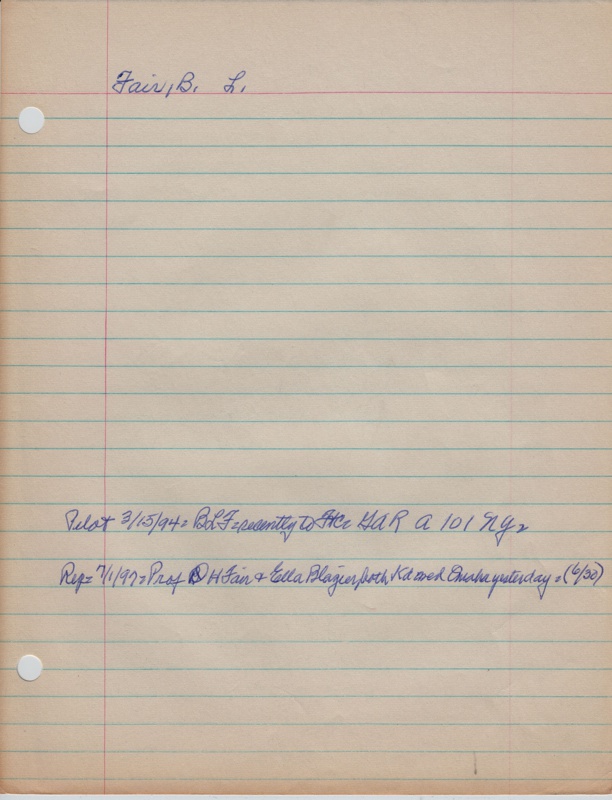 Fair, B. L.
Pilot 3/15/94= BLF=recently to HC= GAR A 101 Ng=
Rep= 7/1/97= Prof D H Fair & Ella Blazier, both Kd wed Omaha yesterday = (6/30)